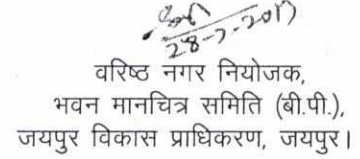 28-7-2017
वरिष्ठ नगर नियोजक,
भवन मानचित्र समिति (बी.पी.),
जयपुर विकास प्राधिकरण, जयपुर।